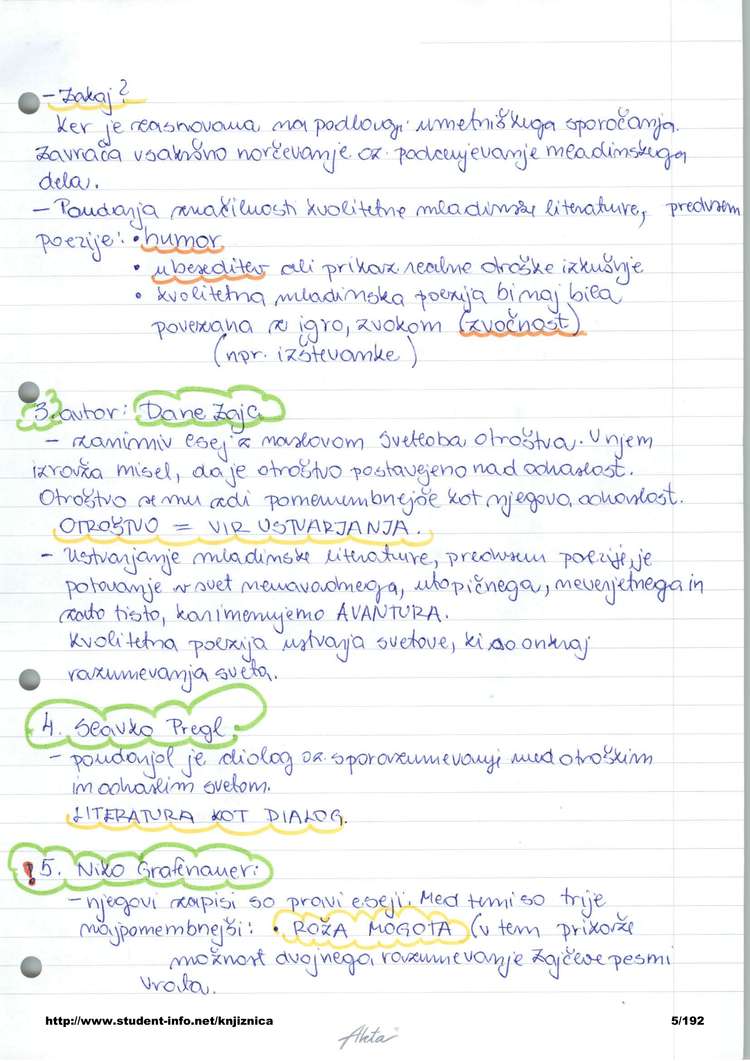 - Zakaj?
Ker je zasnovana na podlogi umetniškega sporočanja.
Zavrača vsakršno norčevanje oz. podcenjevanje mladinskega
dela.
- Poudarja značilnosti kvalitetne mladinske literature, predvsem
poezije: • humor
• ubeseditev ali prikaz realne otroške izkušnje
• kvalitetna mladinska poezija bi naj bila
povezana z igro, zvokom (zvočnost)
(npr. izštevanke)
3. avtor: Dane Zajc
- zanimiv esej z naslovom Svetloba otroštva. V njem
izraža misel, da je otroštvo postavljeno nad odraslost.
Otroštvo se mu zdi pomembnejše kot njegova odraslost.
OTROŠTVO = VIR USTVARJANJA.
- Ustvarjanje mladinske literature, predvsem poezije, je
potovanje v svet nenavadnega, utopičnega, neverjetnega in
zato tisto, kar imenujemo AVANTURA.
Kvalitetna poezija ustvarja svetove, ki so onkraj
razumevanja sveta.
4. Slavko Pregl:
- poudarjal je dialog oz. sporazumevanje med otroškim
in odraslim svetom.
LITERATURA KOT DIALOG.
! 5. Niko Grafenauer:
- njegovi zapisi so pravi eseji. Med temi so trije
najpomembnejši: • ROŽA MOGOTA (v tem prikaže
možnost dvojnega razumevanje Zajčeve pesmi
Vrata.
http://www.student-info.net/knjiznica 5/192
Akta